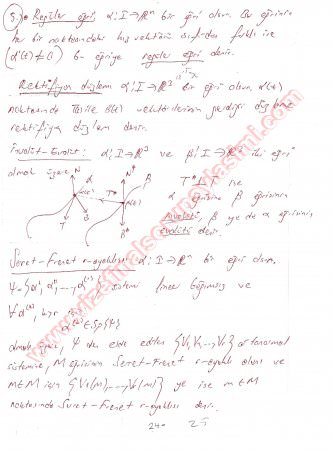 5. Regüler eğri, α: I → ℝⁿ bir eğri olsun. Bu eğrinin
her bir noktasındaki hız vektörü sıfırdan farklı ise
(α'(t) ≠ 0) bu eğriye regüler eğri denir.
Rektifiyan düzlem α: I → ℝ³ bir eğri olsun, α(s)
noktasında T(s) ile B(s) vektörlerinin gerdiği düzleme
rektifiyan düzlem denir.
İnvolüt-Evolüt: α: I → ℝ³ ve β: I → ℝ³ iki eğri
olmak üzere N T* N* β T* ⊥ T ise
α α(s) T β(s) α eğrisine β eğrisinin
B B* evolütü, β ya de α eğrisinin
involütü denir.
Serret-Frenet r-ayaklısı: α: I → ℝⁿ bir eğri olsun.
Ψ = {α', α'', ..., α⁽ʳ⁾} sistemi lineer bağımsız ve
∀ α⁽ᵏ⁾, k>r
α⁽ᵏ⁾ ∈ Sp{Ψ}
olmak üzere, Ψ den elde edilen {V₁, V₂, ..., Vᵣ} ortonormal
sistemine, M eğrisinin Serret-Frenet r-ayaklı alanı ve
m∈M için {V₁(m), ..., Vᵣ(m)} ye ise m∈M
noktasında Serret-Frenet r-ayaklısı denir.
24- 25
www.vizefinalsoruvecmevaplari.com